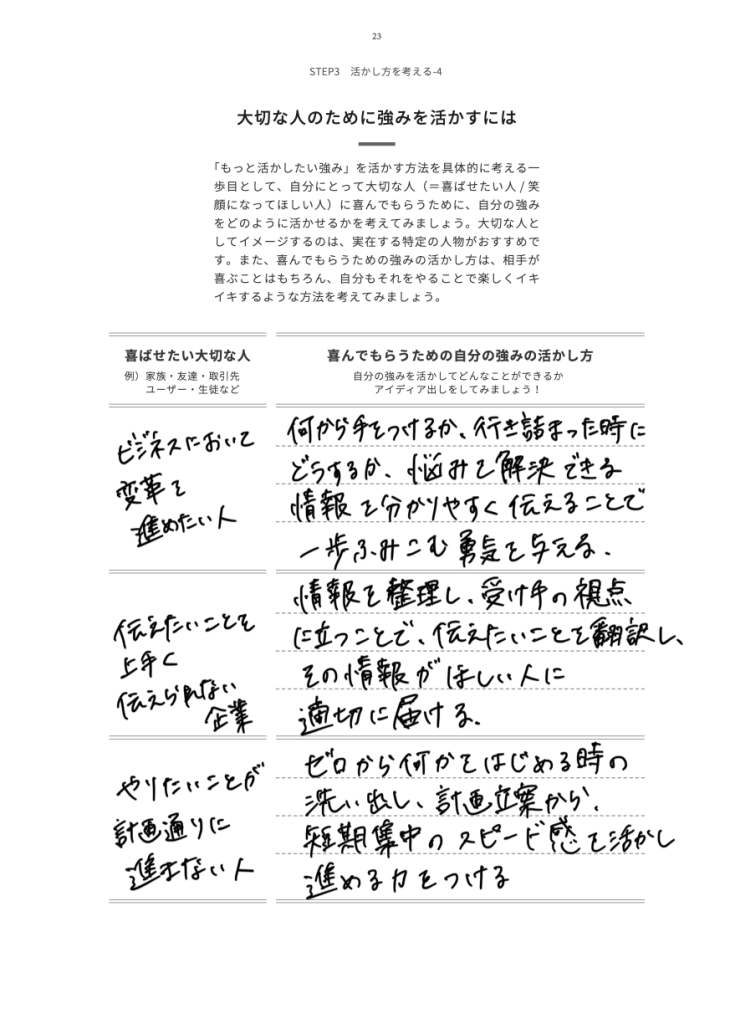 23
STEP3 活かし方を考える-4
大切な人のために強みを活かすには
「もっと活かしたい強み」を活かす方法を具体的に考える一
歩目として、自分にとって大切な人（＝喜ばせたい人 / 笑
顔になってほしい人）に喜んでもらうために、自分の強み
をどのように活かせるかを考えてみましょう。大切な人と
してイメージするのは、実在する特定の人物がおすすめで
す。また、喜んでもらうための強みの活かし方は、相手が
喜ぶことはもちろん、自分もそれをやることで楽しくイキ
イキするような方法を考えてみましょう。
喜ばせたい大切な人
例）家族・友達・取引先
ユーザー・生徒など
喜んでもらうための自分の強みの活かし方
自分の強みを活かしてどんなことができるか
アイディア出しをしてみましょう！
ビジネスにおいて
変革を
進めたい人
何から手をつけるか、行き詰まった時に
どうするか、悩みを解決できる
情報を分かりやすく伝えることで
一歩ふみこむ勇気を与える。
伝えたいことを
上手く
伝えられない
企業
情報を整理し、受け手の視点
に立つことで、伝えたいことを翻訳し、
その情報がほしい人に
適切に届ける。
やりたいことが
計画通りに
進まない人
ゼロから何かをはじめる時の
洗い出し、計画立案から、
短期集中のスピード感を活かし
進める力をつける